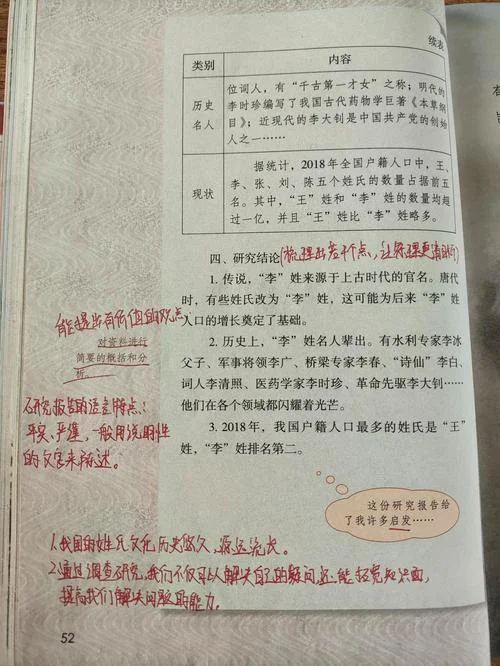 续表
类别 内容
位词人，有“千古第一才女”之称；明代的
历史 李时珍编写了我国古代药物学巨著《本草纲
名人 目》；近现代的李大钊是中国共产党的创始
人之一……
据统计，2018年全国户籍人口中，王、
现状 李、张、刘、陈五个姓氏的数量占据前五
名。其中，“王”姓和“李”姓的数量均超
过一亿，并且“王”姓比“李”姓略多。
四、研究结论(梳理出若干个点，让条理更清晰)
1. 传说，“李”姓来源于上古时代的官名。唐代
时，有些姓氏改为“李”姓，这可能为后来“李”姓
人口的增长奠定了基础。
能提出有价值的观点
对资料进行
简要的概括和分
析。
2. 历史上，“李”姓名人辈出。有水利专家李冰
父子、军事将领李广、桥梁专家李春、“诗仙”李白、
词人李清照、医药学家李时珍、革命先驱李大钊……
他们在各个领域都闪耀着光芒。
研究报告的语言特点：
平实、严谨，一般用说明性
的文字来陈述。
3. 2018年，我国户籍人口最多的姓氏是“王”
姓，“李”姓排名第二。
这份研究报告给
了我许多启发……
1.我国的姓氏文化历史悠久，源远流长。
2.通过调查研究，我们不仅可以解决自己的疑问，还能拓宽知识面，
提高我们解决问题的能力。
52